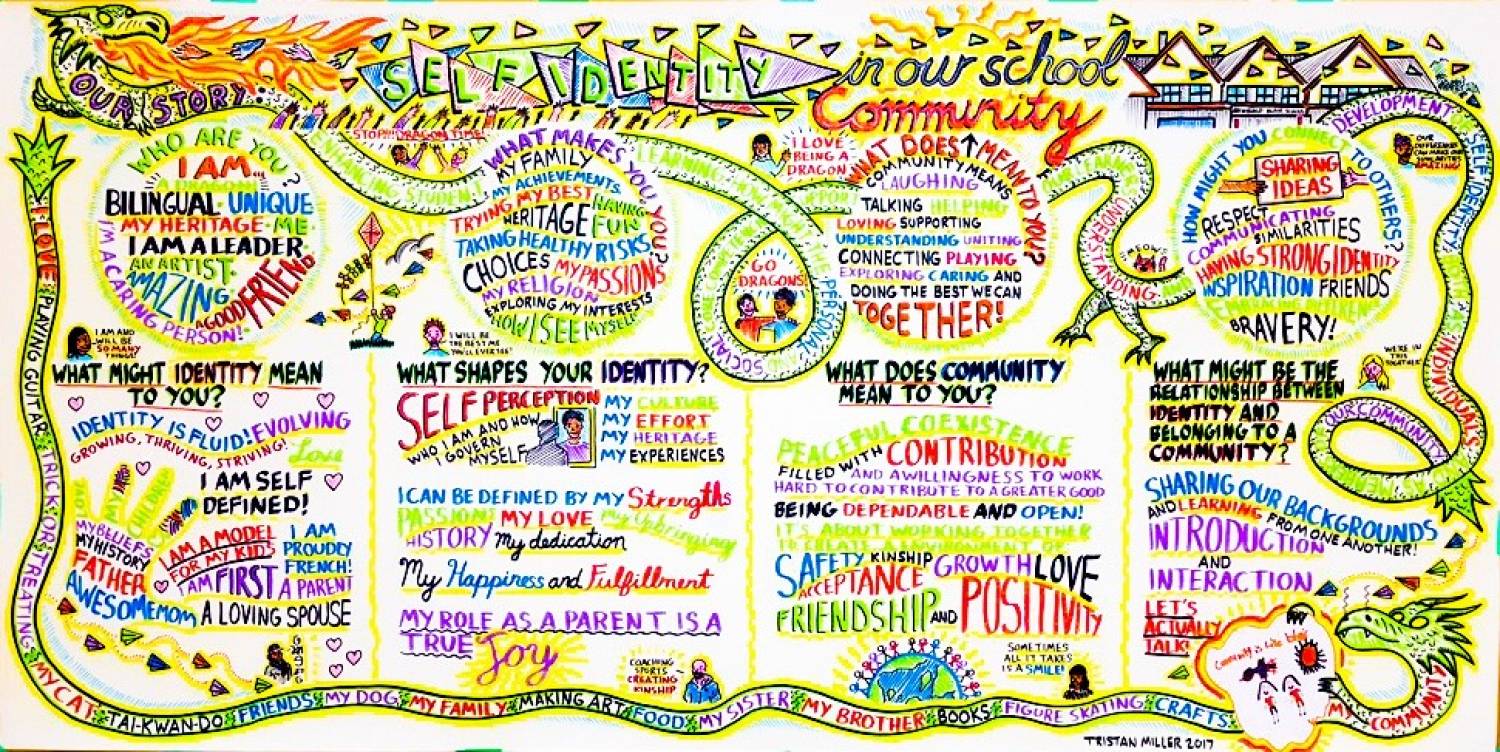 OUR STORY
SELF IDENTITY
in our school
Community
WHO ARE YOU?
I AM...
A DRAGON!
BILINGUAL · UNIQUE
MY HERITAGE · ME
I AM A LEADER
AN ARTIST
AMAZING
A GOOD FRIEND
I'M A CARING PERSON!
I AM AND
WILL BE
SO MANY
THINGS!
STOP!!! DRAGON TIME!
WHAT MAKES YOU YOU?
MY FAMILY
MY ACHIEVEMENTS
TRYING MY BEST HAVING
HERITAGE FUN
TAKING HEALTHY RISKS
CHOICES MY PASSIONS
MY RELIGION
EXPLORING MY INTERESTS
HOW I SEE MYSELF
I WILL BE
THE BEST ME
YOU'LL EVER SEE!
ENHANCING STUDENT LEARNING
SOCIAL
PERSONAL AND
GO
DRAGONS!
I LOVE
BEING A
DRAGON
WHAT DOES ↑ MEAN TO YOU?
COMMUNITY MEANS
LAUGHING
TALKING HELPING
LOVING SUPPORTING
UNDERSTANDING UNITING
CONNECTING PLAYING
EXPLORING CARING AND
DOING THE BEST WE CAN
TOGETHER!
OUR LEARNERS' UNDERSTANDING AND
MEOW!
HOW MIGHT YOU CONNECT TO OTHERS?
SHARING
IDEAS
RESPECT
COMMUNICATING
SIMILARITIES
HAVING STRONG IDENTITY
INSPIRATION FRIENDS
BRAVERY!
DEVELOPMENT OF SELF IDENTITY, BOTH AS INDIVIDUALS
AS MEMBERS
OUR COMMUNITY
OUR
DIFFERENCES
CAN MAKE OUR
SIMILARITIES
AMAZING!
WE'RE IN
THIS
TOGETHER
WHAT MIGHT IDENTITY MEAN
TO YOU?
IDENTITY IS FLUID! EVOLVING
GROWING, THRIVING, STRIVING!
Love
I AM SELF
DEFINED!
MY
CHILDREN
MY BELIEFS
MY HISTORY
FATHER
AWESOME MOM
I AM A MODEL
FOR MY KIDS
I AM
PROUDLY
FRENCH!
I AM FIRST A PARENT
A LOVING SPOUSE
WHAT SHAPES YOUR IDENTITY?
SELF PERCEPTION
WHO I AM AND HOW
I GOVERN
MYSELF
MY CULTURE
MY EFFORT
MY HERITAGE
MY EXPERIENCES
I CAN BE DEFINED BY MY Strengths
PASSION! MY LOVE my Upbringing
HISTORY my dedication
My Happiness and Fulfillment
MY ROLE AS A PARENT IS A
TRUE Joy
COACHING
SPORTS
CREATING
KINSHIP
WHAT DOES COMMUNITY
MEAN TO YOU?
PEACEFUL COEXISTENCE
FILLED WITH CONTRIBUTION
AND A WILLINGNESS TO WORK
HARD TO CONTRIBUTE TO A GREATER GOOD
BEING DEPENDABLE AND OPEN!
IT'S ABOUT WORKING TOGETHER
TO CREATE A ENVIRONMENT OF
SAFETY KINSHIP GROWTH LOVE
ACCEPTANCE
FRIENDSHIP AND POSITIVITY
SOMETIMES
ALL IT TAKES
IS A SMILE!
WHAT MIGHT BE THE
RELATIONSHIP BETWEEN
IDENTITY AND
BELONGING TO A
COMMUNITY?
SHARING OUR BACKGROUNDS
AND LEARNING FROM ONE ANOTHER!
INTRODUCTION
AND
INTERACTION
LET'S
ACTUALLY
TALK!
Community is like
I LOVE PLAYING GUITAR TRICK OR TREATING MY CAT TAI-KWAN-DO FRIENDS MY DOG MY FAMILY MAKING ART FOOD MY SISTER MY BROTHER BOOKS FIGURE SKATING CRAFTS MY COMMUNITY
TRISTAN MILLER 2017